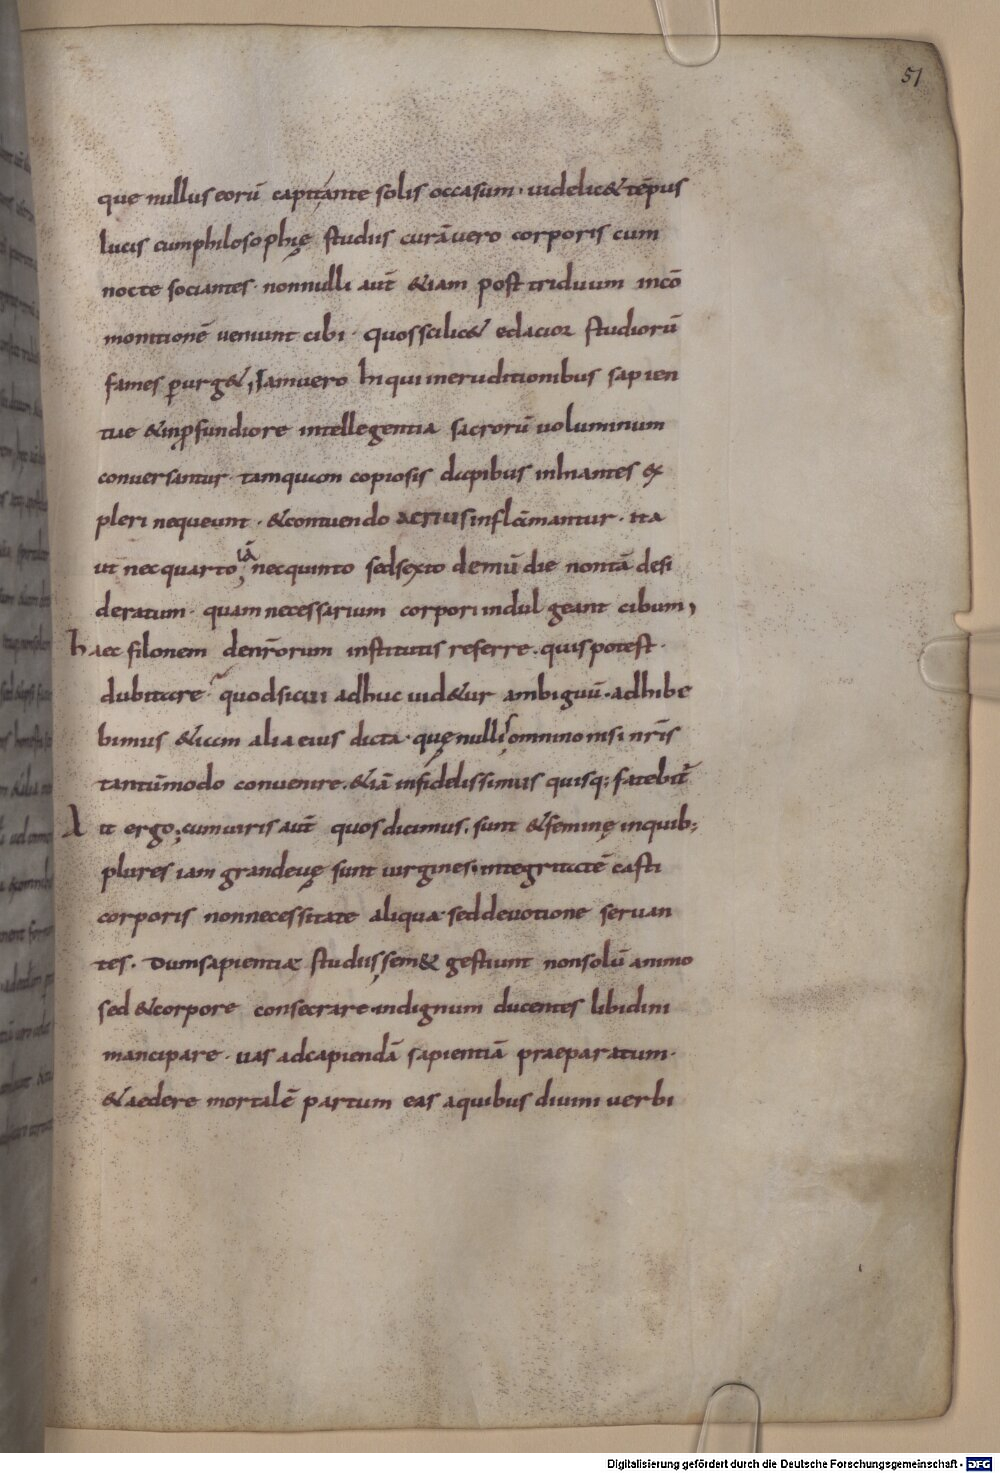 51
que nullus eorū capit ante solis occasum · uidelic& tēpus
lucis cum philosophię studiis curā uero corporis cum
nocte sociantes · nonnulli aut̄ &iam post triduum incō
monitionē ueniunt cibi · quos scilic& edacior studiorū
fames ꝑurg&; Iam uero hi qui in eruditionibus sapien
tiae & in ꝓfundiore intellegentia sacrorū uoluminum
conuersantur · tamquam copiosis dapibus inhiantes ex
pleri nequeunt · & contuendo acrius inflammantur · ita
ut nec quarto iā nec quinto sed sexto demū die non tā desi
deratum · quam necessarium corpori indulgeant cibum;
haec filonem de nr̄orum institutis referre · quis potest
dubitare · quod si cui adhuc uid&ur ambiguū · adhibe
bimus &iam alia eius dicta · quę nullis omnino nisi nr̄is
tantūmodo conuenire · &iā infidelissimus quisq: fatebit̄
Ait ergo; cum uiris aut̄ quos dicimus · sunt & feminę in quib:
plures iam grandeuę sunt uirgines · integritatē casti
corporis non necessitate aliqua sed deuotione seruan
tes · dum sapientiæ studiis sem& gestiunt non solū animo
sed & corpore consecrare · indignum ducentes libidini
mancipare · uas ad capiendā sapientiā praeparatum ·
& aedere mortalē partum eas a quibus diuini uerbi
Digitalisierung gefördert durch die Deutsche Forschungsgemeinschaft - DFG